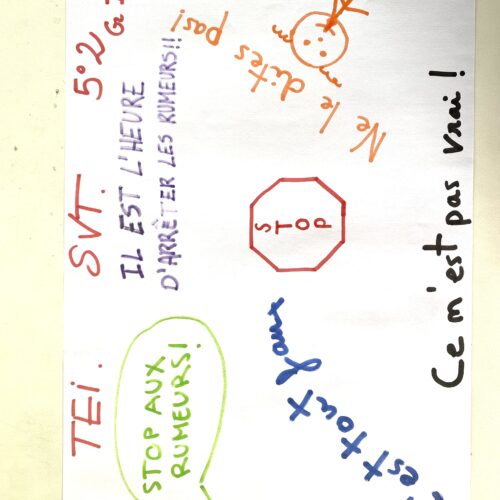 TEi. SVT. 5°2 Gr
IL EST L'HEURE
D'ARRÊTER LES RUMEURS!!
STOP AUX
RUMEURS!
Ne le dites pas!
STOP
'est tout faux
Ce n'est pas vrai !